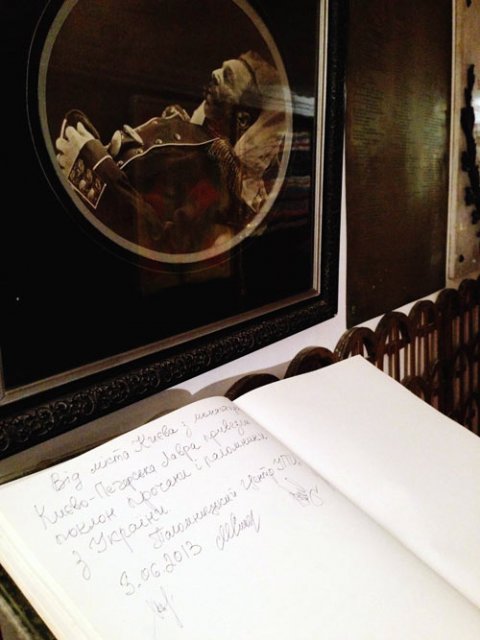 Від міста Києва з
Києво-Печерска Лавра привезли
поклон прочани і паломники
з України
Паломницкий Центр УПЦ
3.06.2013